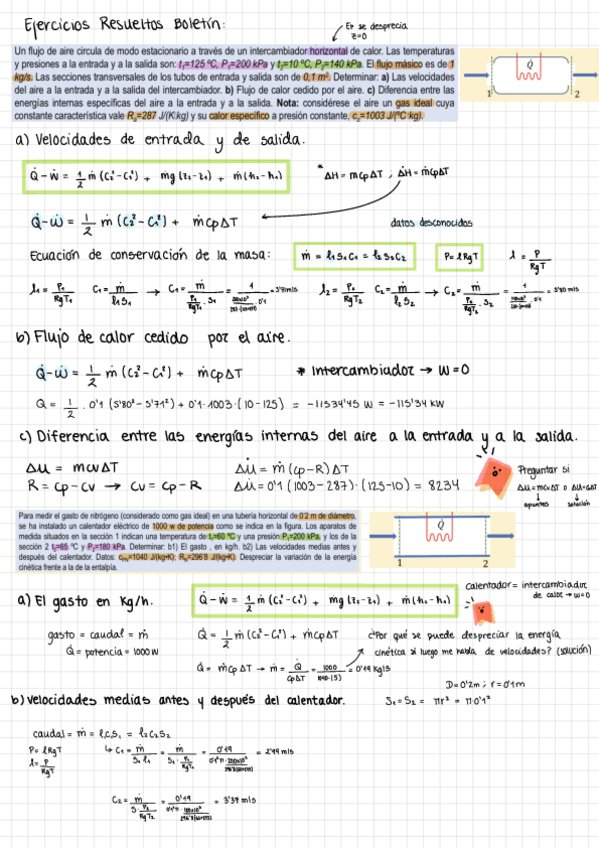 Ejercicios Resueltos Boletín:
Ep se desprecia
z=0
Un flujo de aire circula de modo estacionario a través de un intercambiador horizontal de calor. Las temperaturas
y presiones a la entrada y a la salida son: t₁=125 ºC, P₁=200 kPa y t₂=10 ºC, P₂=140 kPa. El flujo másico es de 1
kg/s. Las secciones transversales de los tubos de entrada y salida son de 0,1 m². Determinar: a) Las velocidades
del aire a la entrada y a la salida del intercambiador. b) Flujo de calor cedido por el aire. c) Diferencia entre las
energías internas específicas del aire a la entrada y a la salida. Nota: considérese el aire un gas ideal cuya
constante característica vale Rg=287 J/(K·kg) y su calor específico a presión constante, cp=1003 J/(ºC·kg).
Q̇
1 2
a) Velocidades de entrada y de salida.
Q̇-Ẇ = 1/2 ṁ (C₂²-C₁²) + ṁg (z₂-z₁) + ṁ(h₂-h₁)
* ΔH = mcpΔT ; ΔḢ = ṁcpΔT
Q̇-Ẇ = 1/2 ṁ (C₂²-C₁²) + ṁcpΔT
datos desconocidos
Ecuación de conservación de la masa: ṁ = ρ₁S₁C₁ = ρ₂S₂C₂ P=ρRgT ρ = P/RgT
ρ₁ = P₁/RgT₁ C₁ = ṁ/ρ₁S₁ → C₁ = ṁ/(P₁/RgT₁ · S₁) = = 5'71m/s ρ₂ = P₂/RgT₂ C₂ = ṁ/ρ₂S₂ → C₂ = ṁ/(P₂/RgT₂ · S₂) = = 5'80 m/s
b) Flujo de calor cedido por el aire.
Q̇-Ẇ = 1/2 ṁ (C₂²-C₁²) + ṁcpΔT * Intercambiador → W=0
Q = 1/2 · 0'1 (5'80²-5'71²) + 0'1·1003·(10-125) = -11534'45 W = -115'34 KW
c) Diferencia entre las energías internas del aire a la entrada y a la salida.
Δu = mcvΔT Δu̇ = ṁ(cp-R)ΔT
R = cp-cv → cv = cp-R Δu̇ = 0'1 (1003-287)·(125-10) = 8234
Preguntar si
Δu=mcvΔT o Δu̇=GΔT
apuntes solución
Para medir el gasto de nitrógeno (considerado como gas ideal) en una tubería horizontal de 0'2 m de diámetro,
se ha instalado un calentador eléctrico de 1000 w de potencia como se indica en la figura. Los aparatos de
medida situados en la sección 1 indican una temperatura de t₁=60 ºC y una presión P₁=200 kPa, y los de la
sección 2 t₂=65 ºC y P₂=180 kPa. Determinar: b1) El gasto , en kg/h. b2) Las velocidades medias antes y
después del calentador. Datos: cPN2=1040 J/(kg•K); Rg=296'8 J/(kg•K). Despreciar la variación de la energía
cinética frente a la de la entalpía.
Q̇
1 2
a) El gasto en Kg/h. Q̇-Ẇ = 1/2 ṁ (C₂²-C₁²) + ṁg (z₂-z₁) + ṁ(h₂-h₁)
calentador = intercambiador
de calor → w=0
gasto = caudal = ṁ Q̇ = 1/2 ṁ (C₂²-C₁²) + ṁcpΔT
¿Por qué se puede despreciar la energía
cinética si luego me habla de velocidades? (solución)
Q̇ = potencia = 1000W
Q̇ = ṁcpΔT → ṁ = Q̇/cpΔT = 1000/1040·(5) = 0'19 Kg/s
D=0'2m ; r=0'1m
b) Velocidades medias antes y después del calentador.
S₁=S₂ = πr² = π·0'1²
caudal = ṁ = ρ₁C₁S₁ = ρ₂C₂S₂
P=ρRgT ↳ C₁ = ṁ/S₁ρ₁ = ṁ/(S₁·P₁/RgT₁) = = 2'99 m/s
ρ = P/RgT
C₂ = ṁ/(S·P₂/RgT₂) = = 3'37 m/s